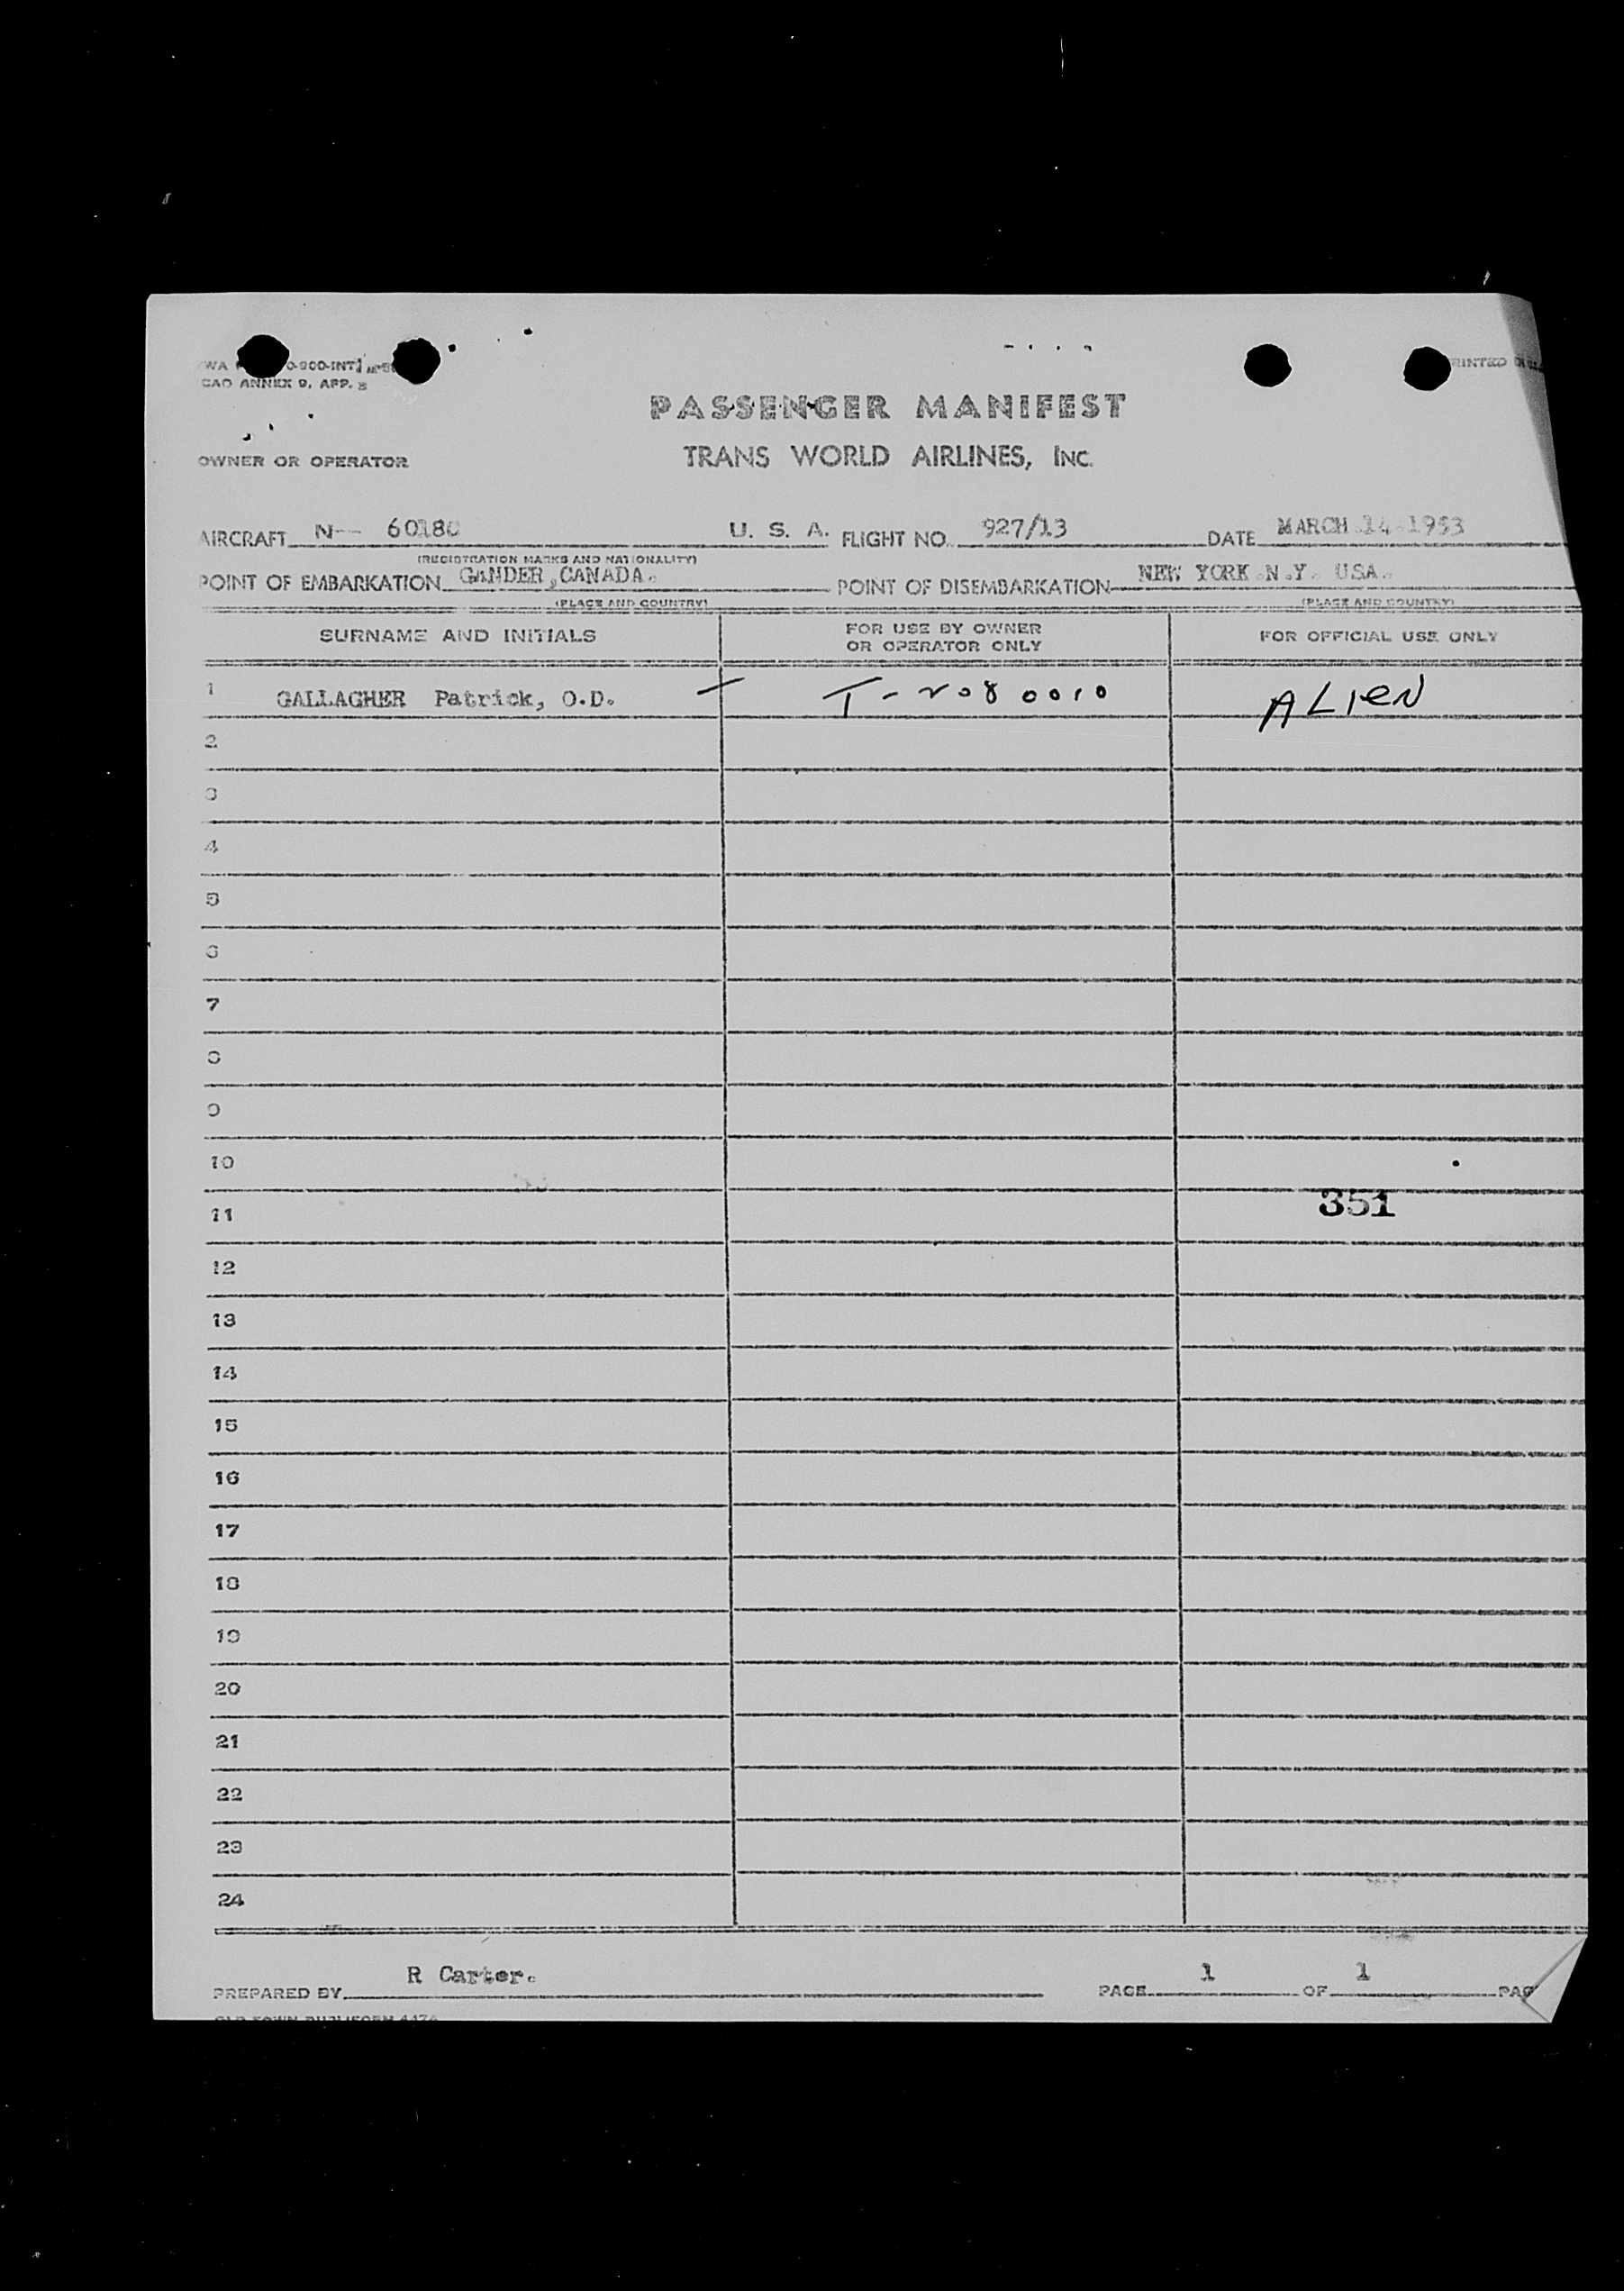 CAO ANNEX 9, APP.
PASSENGER MANIFEST
OWNER OR OPERATOR
TRANS WORLD AIRLINES, INC.
AIRCRAFT N-- 60180 U. S. A. FLIGHT NO. 927/13 DATE MARCH 14 1953
(REGISTRATION MARKS AND NATIONALITY)
POINT OF EMBARKATION GANDER, CANADA. POINT OF DISEMBARKATION NEW YORK N.Y. USA.
(PLACE AND COUNTRY) (PLACE AND COUNTRY)
SURNAME AND INITIALS FOR USE BY OWNER OR OPERATOR ONLY FOR OFFICIAL USE ONLY
1 GALLAGHER Patrick, O.D. T-2080010 ALIEN
2
3
4
5
6
7
8
9
10
11 351
12
13
14
15
16
17
18
19
20
21
22
23
24
PREPARED BY R Carter. PAGE 1 OF 1